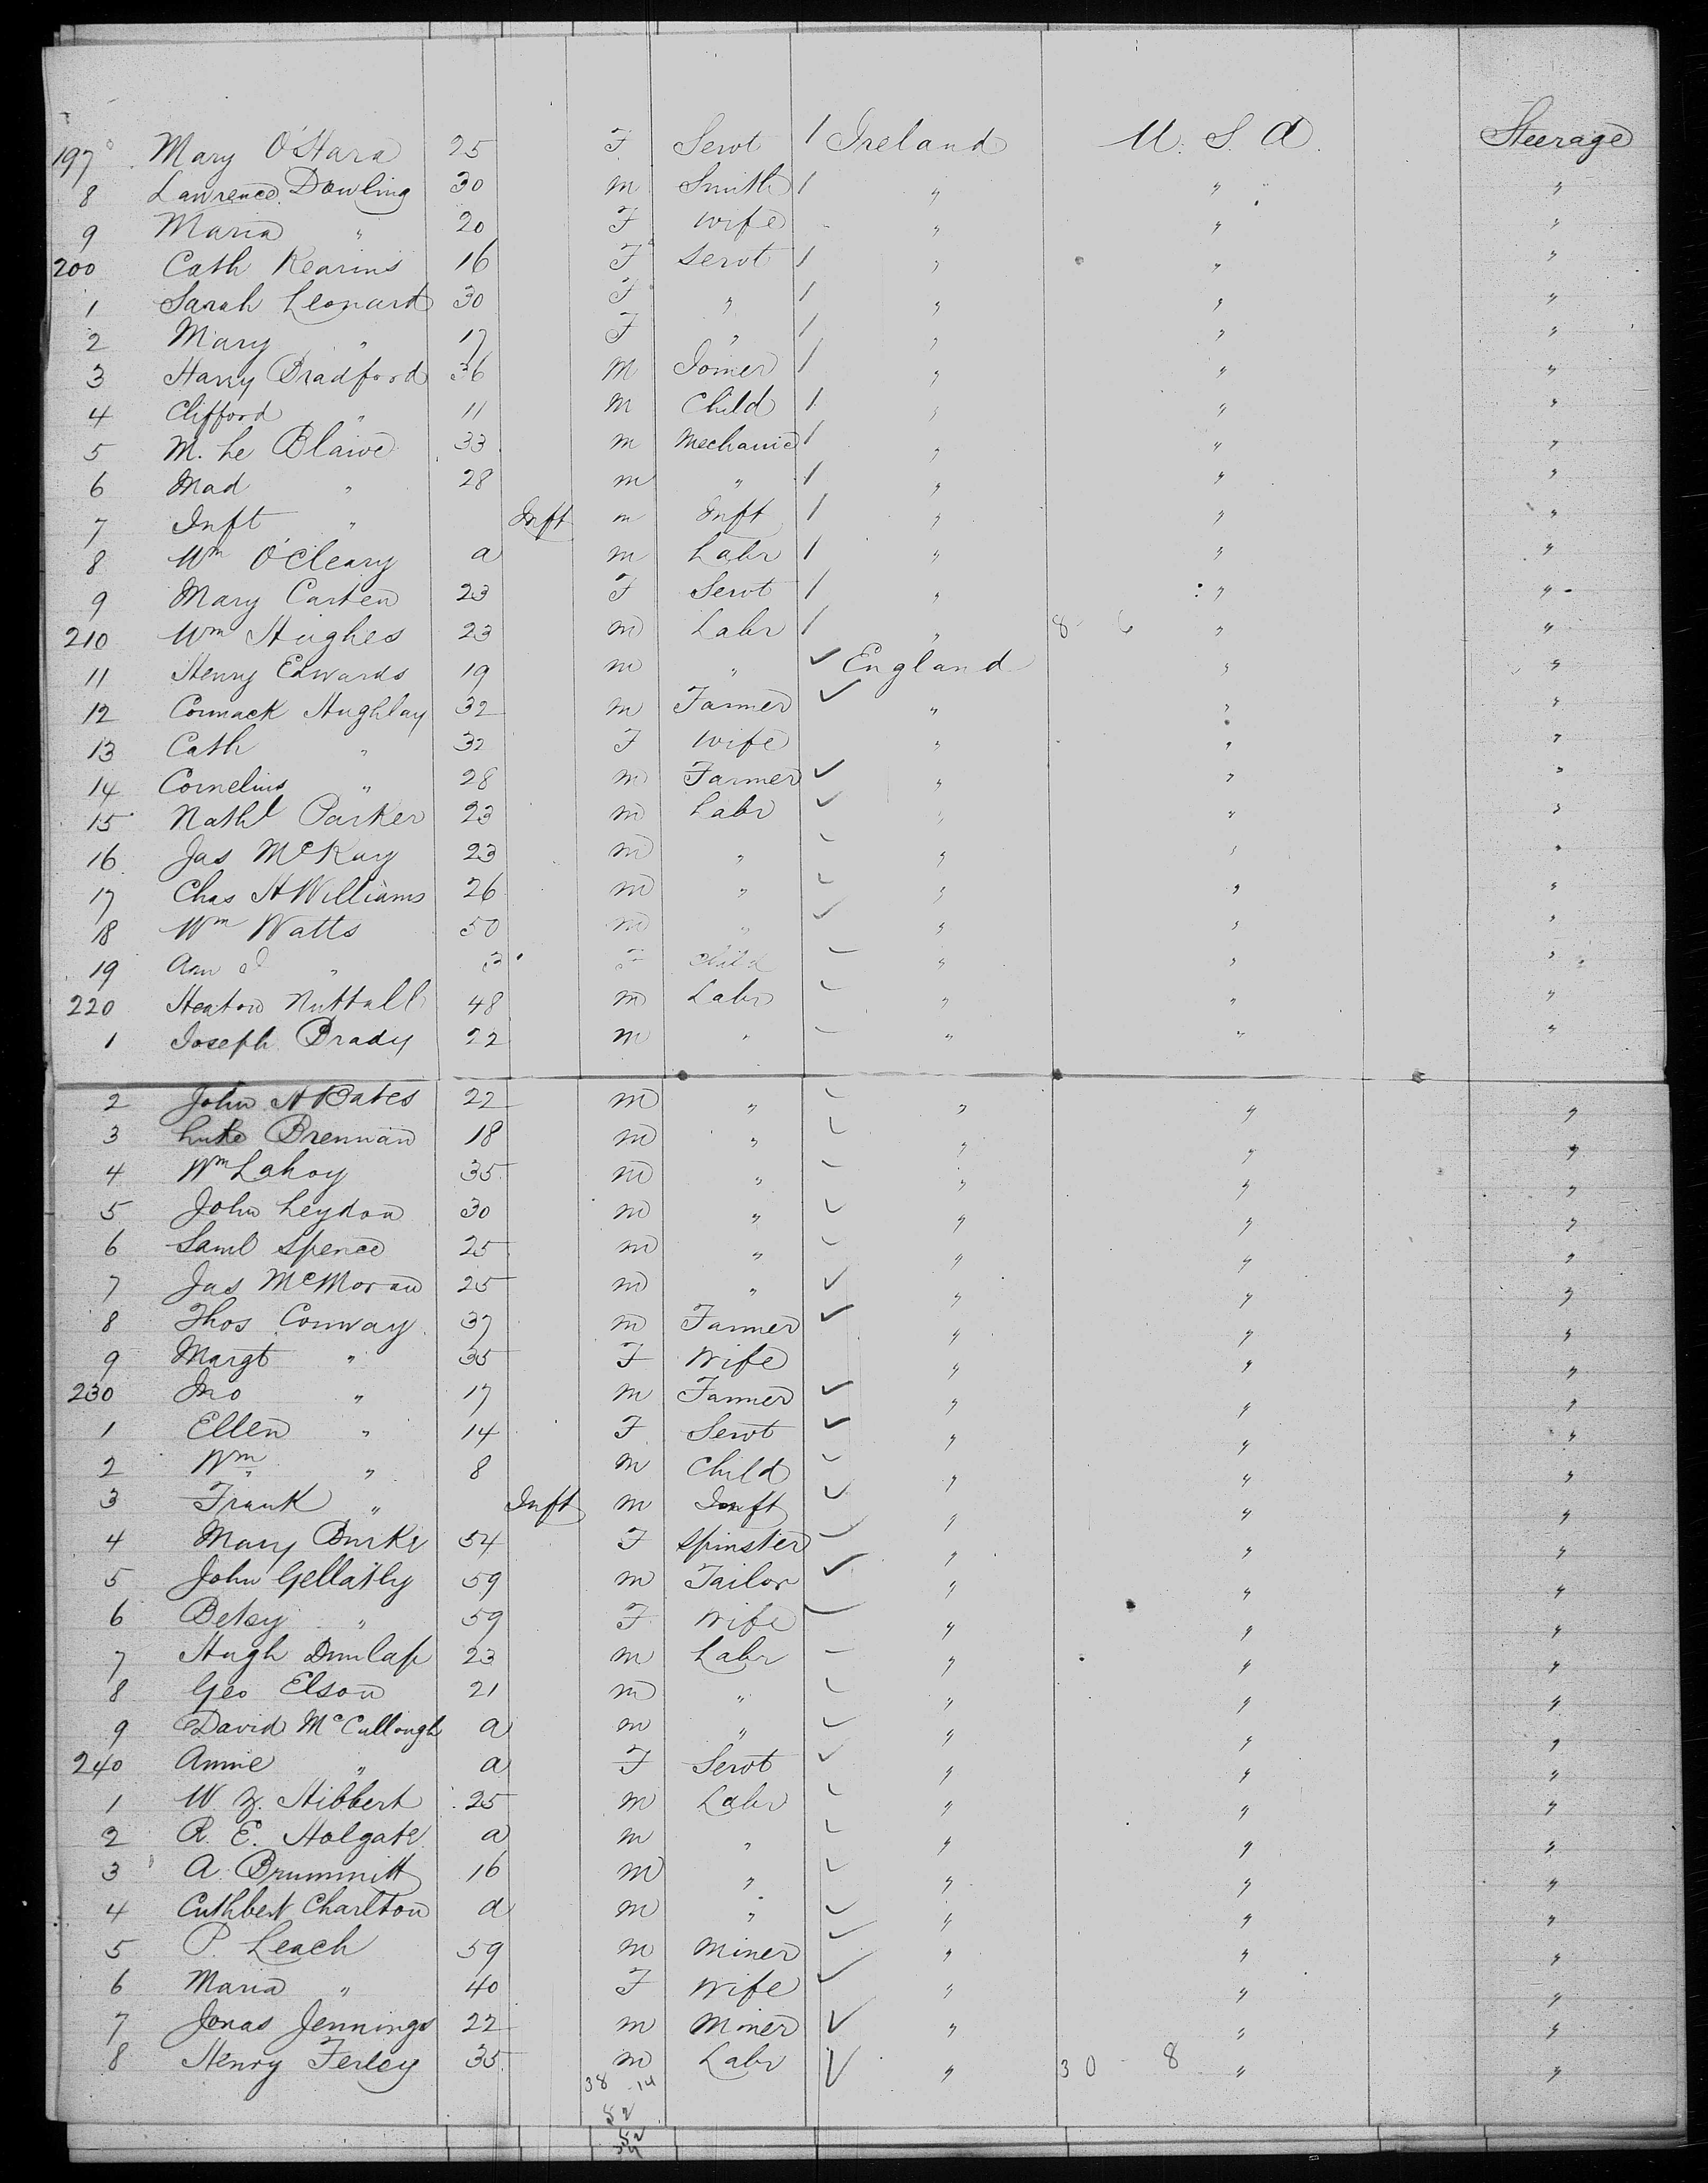 197 Mary O'Hara 25 F Servt 1 Ireland U. S. A. Steerage
8 Lawrence Dowling 30 m Smith 1 " " "
9 Maria " 20 F wife " " "
200 Cath Kearins 16 F Servt 1 " " "
1 Sarah Leonard 30 F " 1 " " "
2 Mary " 17 F " 1 " " "
3 Harry Bradford 36 M Joiner 1 " " "
4 Clifford " 11 M Child 1 " " "
5 M. Le 33 m Mechanic 1 " " "
6 Mad " 28 m " 1 " " "
7 Inft " Inft m Inft 1 " " "
8 Wm O'Cleary a m Labr 1 " " "
9 Mary Carten 23 F Servt 1 " " "
210 Wm Hughes 23 m Labr 1 " 8 6 " "
11 Henry Edwards 19 m " ✓ England " "
12 Cormack Hughlay 32 m Farmer ✓ " " "
13 Cath " 32 F wife " " "
14 Cornelius " 28 m Farmer ✓ " " "
15 Nathl Parker 23 m Labr ✓ " " "
16 Jas McKay 23 m " ✓ " " "
17 Chas H Williams 26 m " ✓ " " "
18 Wm Watts 50 m " ✓ " " "
19 Ann " F Child ✓ " " "
220 Heaton Nuttall 48 m Labr ✓ " " "
1 Joseph Brady 22 m " ✓ " " "
2 John H Bates 22 m " ✓ " " "
3 Luke Brennan 18 m " ✓ " " "
4 Wm Lahoy 35 m " ✓ " " "
5 John Leydon 30 m " ✓ " " "
6 Saml Spence 25 m " ✓ " " "
7 Jas McMoran 25 m " ✓ " " "
8 Thos Conway 37 m Farmer ✓ " " "
9 Margt " 35 F Wife " " "
230 Jno " 17 m Farmer ✓ " " "
1 Ellen " 14 F Servt ✓ " " "
2 Wm " 8 m Child ✓ " " "
3 Frank " Inft m Inft ✓ " " "
4 Mary Burke 54 F Spinster ✓ " " "
5 John Gellatly 59 m Tailor ✓ " " "
6 Betsy " 59 F Wife ✓ " " "
7 Hugh Dunlap 23 m Labr ✓ " " "
8 Geo Elson 21 m " ✓ " " "
9 David McCullough a m " ✓ " " "
240 Annie " a F Servt ✓ " " "
1 W. Z. Hibbert 25 m Labr ✓ " " "
2 R. E. Holgate a m " ✓ " " "
3 A. Brummitt 16 m " ✓ " " "
4 Cuthbert Charlton a m " ✓ " " "
5 P. Leach 59 m Miner ✓ " " "
6 Maria " 40 F Wife ✓ " " "
7 Jonas Jennings 22 m Miner ✓ " " "
8 Henry Ferley 35 m Labr ✓ " 30 8 " "
38 14
52